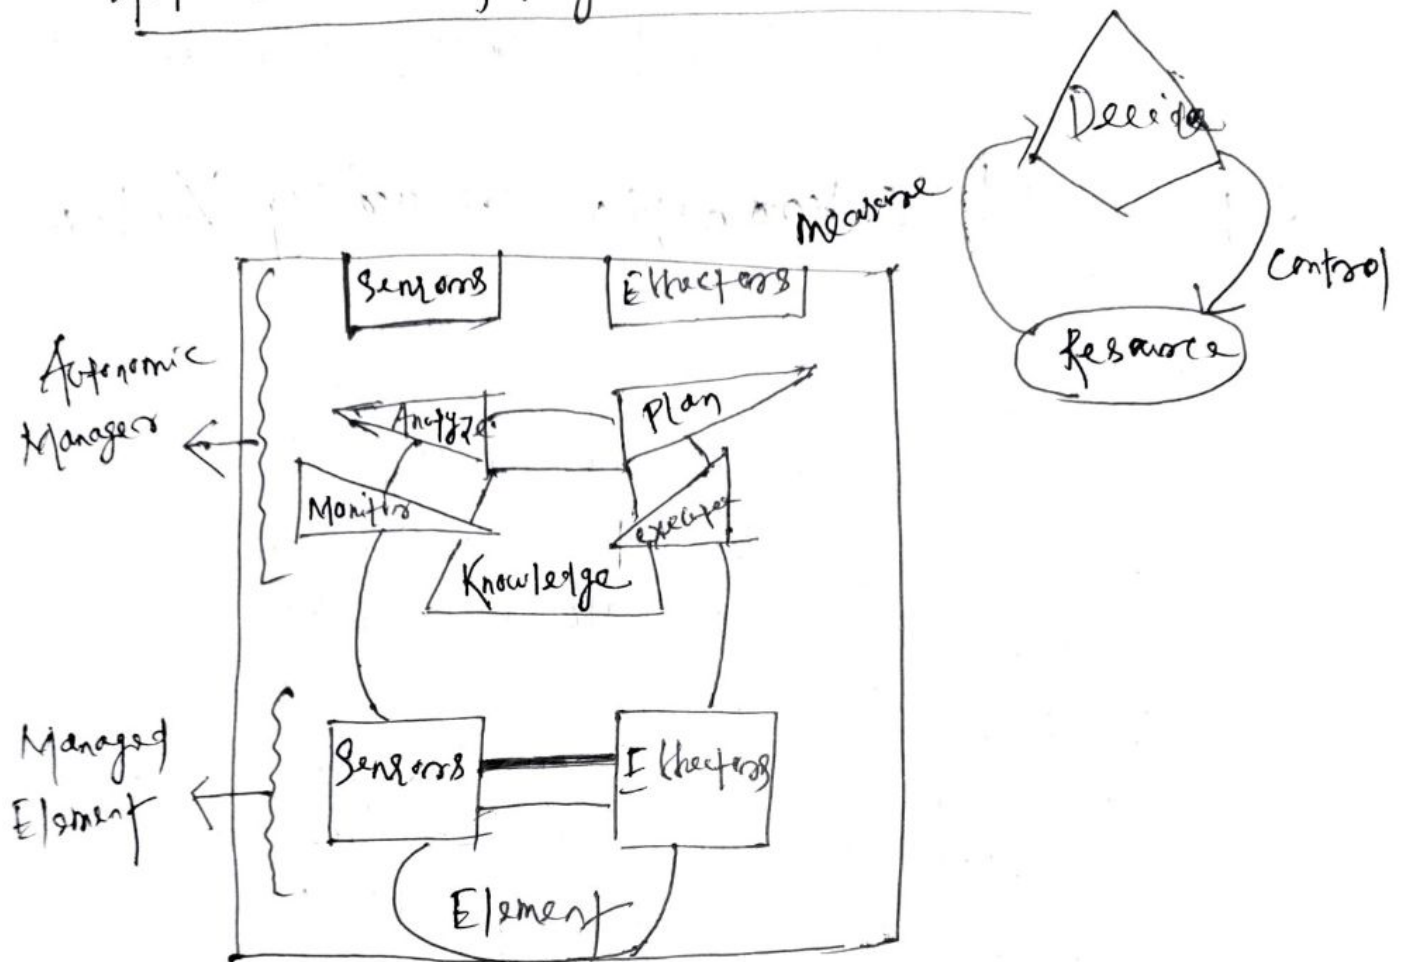 Decide
Measure
Control
Resource
Sensors
Effectors
Autonomic
Manager
Analyze
Plan
Monitor
execute
Knowledge
Managed
Element
Sensors
Effectors
Element